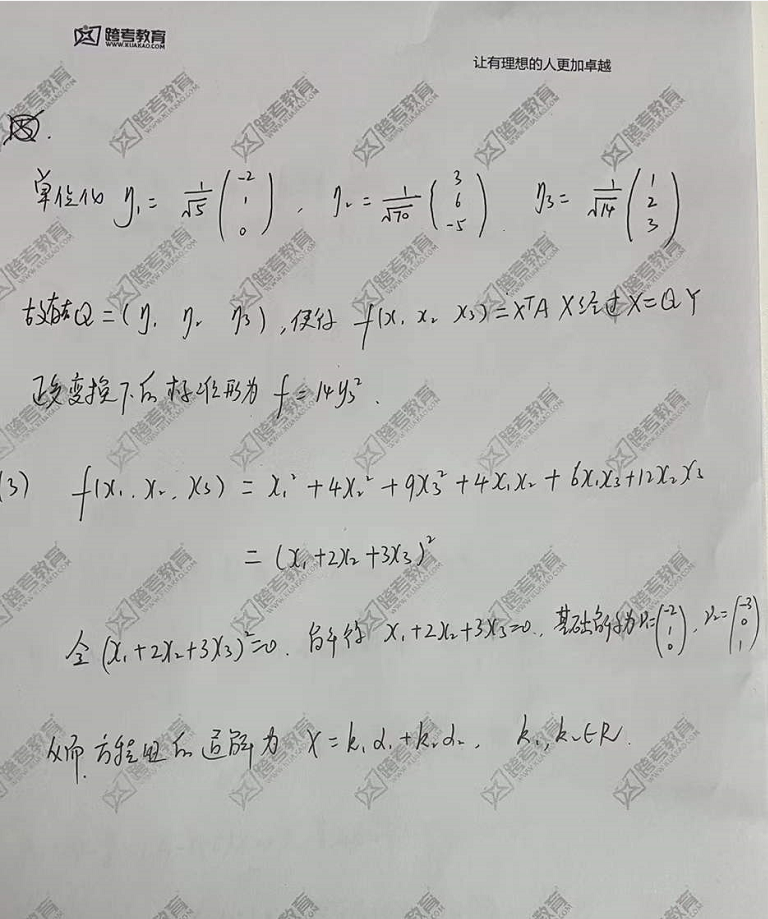 跨考教育
WWW.KUAKAO.COM
让有理想的人更加卓越
单位化 η₁ = 1/√5 (-2 1 0), η₂ = 1/√70 (3 6 -5). η₃ = 1/√14 (1 2 3)
故有Q = (η₁ η₂ η₃), 使得 f(x₁ x₂ x₃) = XᵀAX 经过 X = QY
正交变换下的标准形为 f = 14y₃².
(3) f(x₁, x₂, x₃) = x₁² + 4x₂² + 9x₃² + 4x₁x₂ + 6x₁x₃ + 12x₂x₃
= (x₁ + 2x₂ + 3x₃)²
令 (x₁ + 2x₂ + 3x₃)² = 0. 解得 x₁ + 2x₂ + 3x₃ = 0, 基础解系为 = (-2 1 0), = (-3 0 1)
从而, 方程组的通解为 X = k₁α₁ + k₂α₂, k₁, k₂ ∈ R.